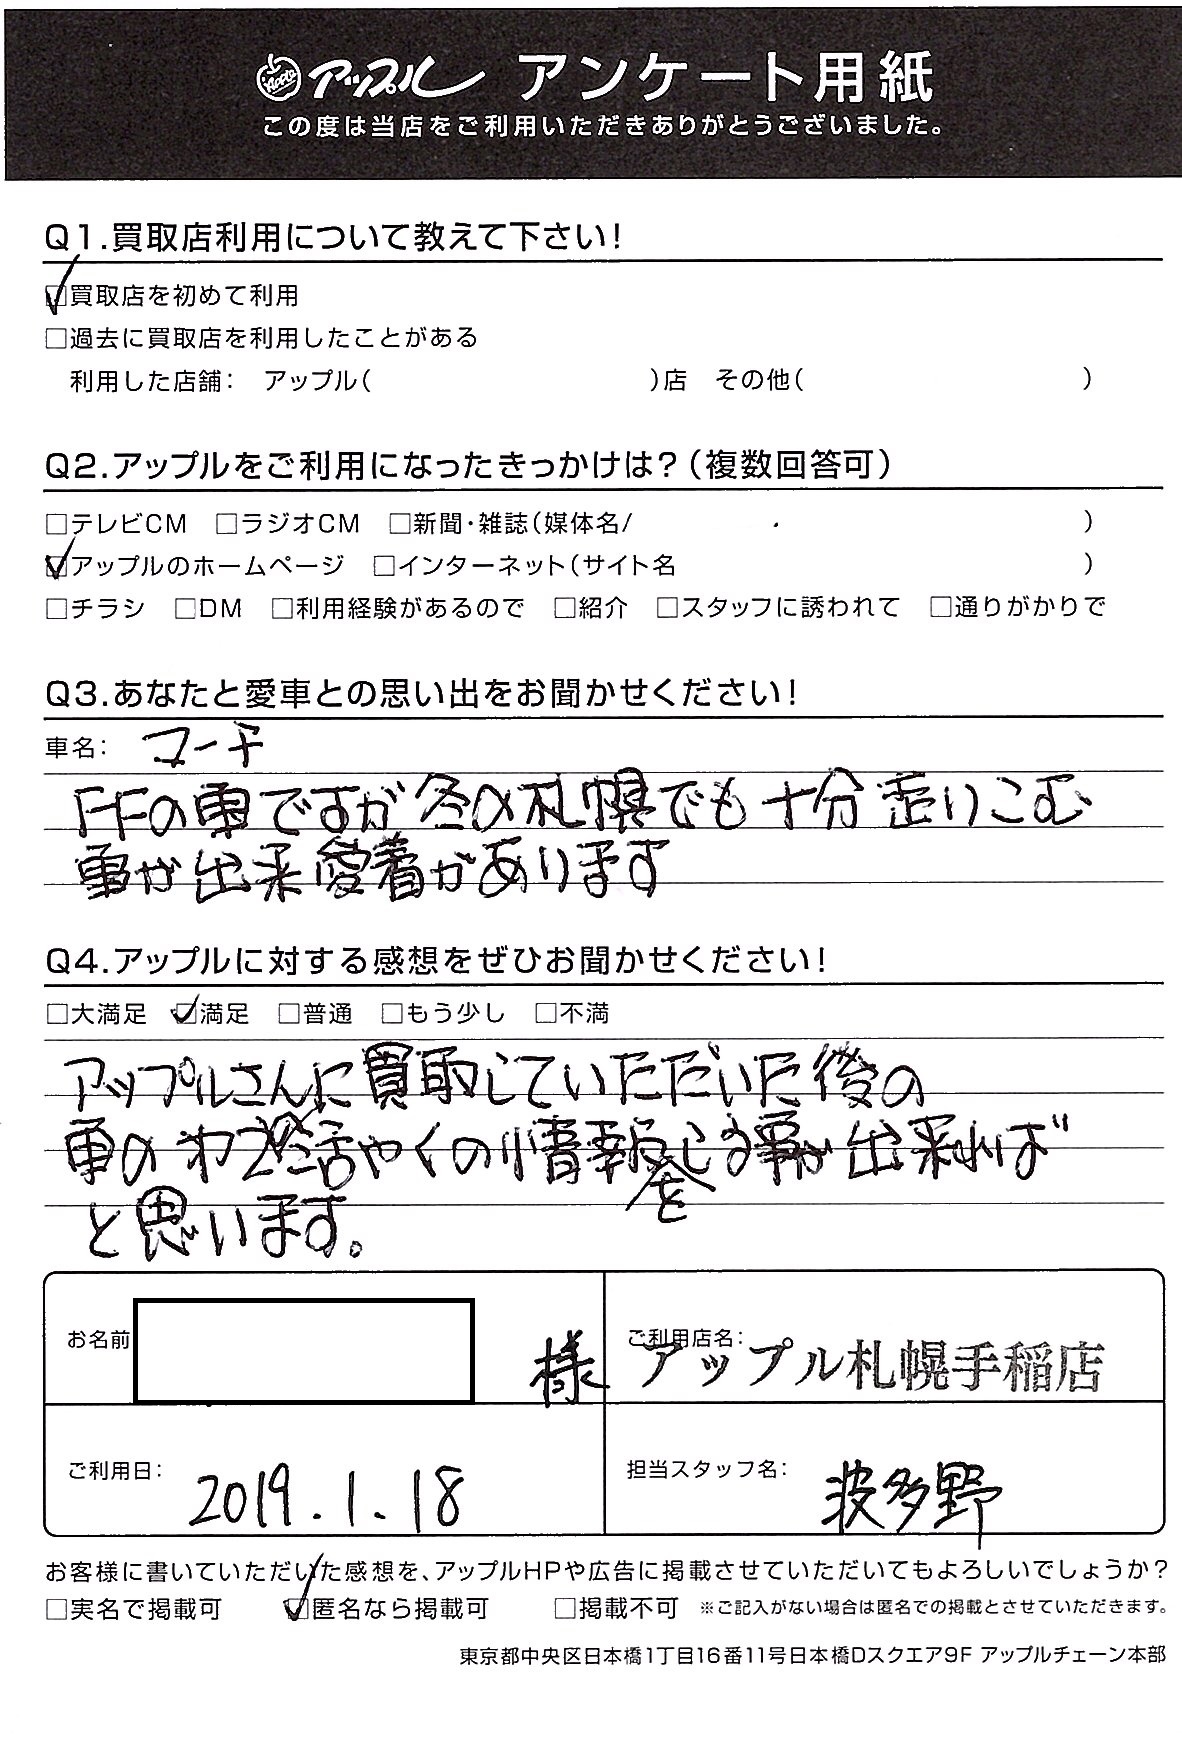 Apple アップル アンケート用紙
この度は当店をご利用いただきありがとうございました。
Q1.買取店利用について教えて下さい!
☑買取店を初めて利用
□過去に買取店を利用したことがある
利用した店舗: アップル( )店 その他( )
Q2.アップルをご利用になったきっかけは?(複数回答可)
□テレビCM □ラジオCM □新聞・雑誌(媒体名/ )
☑アップルのホームページ □インターネット(サイト名 )
□チラシ □DM □利用経験があるので □紹介 □スタッフに誘われて □通りがかりで
Q3.あなたと愛車との思い出をお聞かせください!
車名: マーチ
FFの車ですが冬の札幌でも十分走りこむ
事が出来愛着があります
Q4.アップルに対する感想をぜひお聞かせください!
□大満足 ☑満足 □普通 □もう少し □不満
アップルさんに買取していただいた後の
車の 活やくの情報を 事が出来れば
と思います。
お名前 様
ご利用店名: アップル札幌手稲店
ご利用日: 2019.1.18
担当スタッフ名: 波多野
お客様に書いていただいた感想を、アップルHPや広告に掲載させていただいてもよろしいでしょうか?
□実名で掲載可 ☑匿名なら掲載可 □掲載不可 ※ご記入がない場合は匿名での掲載とさせていただきます。
東京都中央区日本橋1丁目16番11号日本橋Dスクエア9F アップルチェーン本部